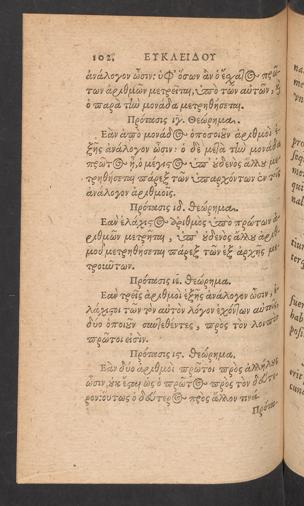 102. ΕΥΚΛΕΙΔΟΥ
ἀνάλογον ὦσιν: ὑφ' ὅσων ἂν ὁ ἔσχατος πρώ-
των ἀριθμῶν μετρεῖται, ὑπὸ τῶν αὐτῶν, καὶ
ὁ παρὰ τὴν μονάδα μετρηθήσεται.
Πρότασις ιγ. Θεώρημα.
Ἐὰν ἀπὸ μονάδος ὁποσοιοῦν ἀριθμοὶ ἑ-
ξῆς ἀνάλογον ὦσιν: ὁ δὲ μετὰ τὴν μονάδα
πρῶτος ᾖ, ὁ μέγιστος ὑπ' οὐδενὸς ἄλλου με-
τρηθήσεται πάρεξ τῶν ὑπαρχόντων ἐν τοῖς
ἀνάλογον ἀριθμοῖς.
Πρότασις ιδ. Θεώρημα.
Ἐὰν ἐλάχιστος ἀριθμὸς ὑπὸ πρώτων ἀ-
ριθμῶν μετρῆται, ὑπ' οὐδενὸς ἄλλου ἀριθ-
μοῦ μετρηθήσεται πάρεξ τῶν ἐξ ἀρχῆς με-
τρούντων.
Πρότασις ιε. Θεώρημα.
Ἐὰν τρεῖς ἀριθμοὶ ἑξῆς ἀνάλογον ὦσιν, ἐ-
λάχιστοι τῶν τὸν αὐτὸν λόγον ἐχόντων αὐτοῖς,
δύο ὁποιοῦν συντεθέντες, πρὸς τὸν λοιπὸν
πρῶτοι εἰσίν.
Πρότασις ις. Θεώρημα.
Ἐὰν δύο ἀριθμοὶ πρῶτοι πρὸς ἀλλήλους
ὦσιν, οὐκ ἔσται ὡς ὁ πρῶτος πρὸς τὸν δεύτε-
ρον: οὕτως ὁ δεύτερος πρὸς ἄλλον τινά.
Πρότα-